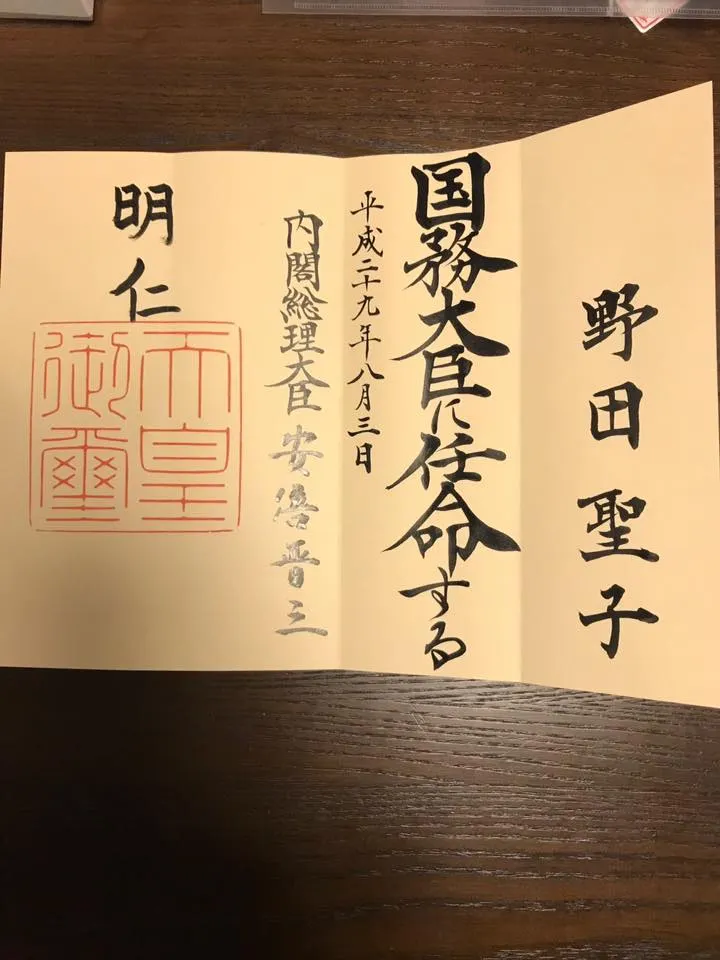 野田聖子
国務大臣に任命する
平成二十九年八月三日
内閣総理大臣 安倍晋三
明仁
天皇
御璽